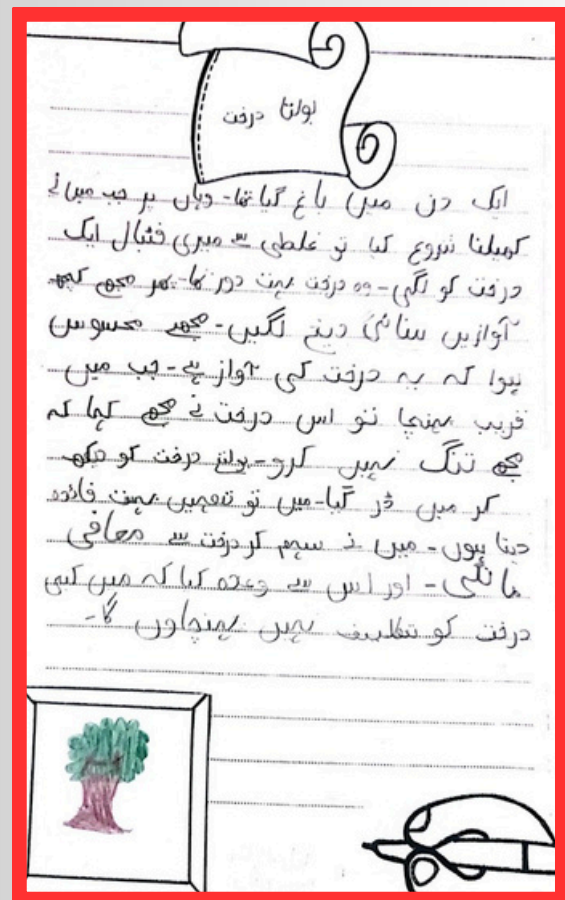 بولتا درخت
ایک دن میں باغ گیا تھا۔ وہاں پر جب میں نے
کھیلنا شروع کیا تو غلطی سے میری فٹبال ایک
درخت کو لگی۔ وہ درخت بہت دور تھا۔ پھر مجھے کچھ
آوازیں سنائی دینے لگیں۔ مجھے محسوس
ہوا کہ یہ درخت کی آواز ہے۔ جب میں
قریب پہنچا تو اس درخت نے مجھے کہا کہ
مجھے تنگ نہیں کرو۔ بولتے درخت کو دیکھ
کر میں ڈر گیا۔ میں تو تمھیں بہت فائدہ
دیتا ہوں۔ میں نے سہم کر درخت سے معافی
مانگی۔ اور اس سے وعدہ کیا کہ میں کبھی
درخت کو تکلیف نہیں پہنچاوں گا۔